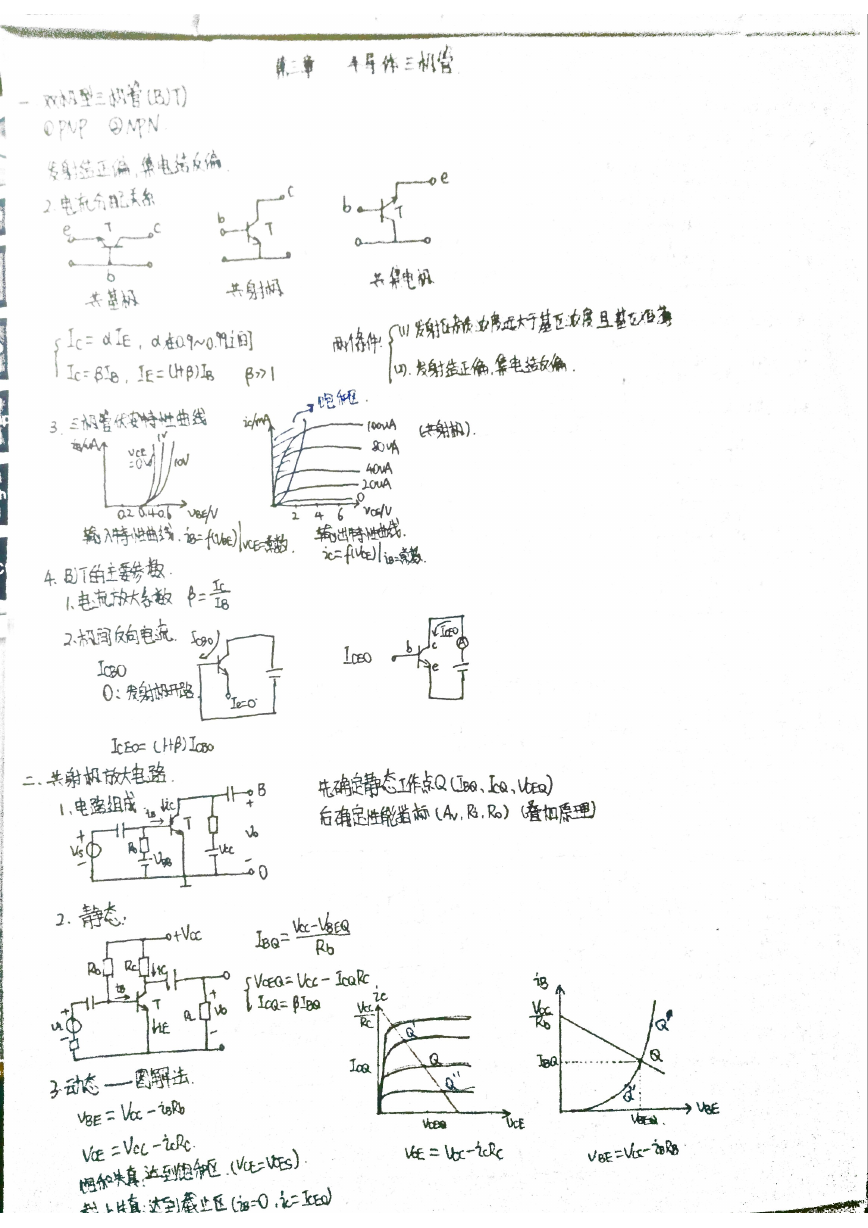 第三章 半导体三极管
一 双极型三极管(BJT)
①PNP ②NPN
发射结正偏,集电结反偏.
2.电流分配关系
e T c b
共基极
b c T
共射极
b e T
共集电极
IC=αIE, α在0.9~0.99之间
IC=βIB, IE=(1+β)IB β>>1
两个条件:
(1) 发射区杂质浓度远大于基区浓度且基区很薄
(2). 发射结正偏,集电结反偏.
3. 三极管伏安特性曲线
iB/uA
VCE=0V 1V 10V
0.2 0.4 0.6 VBE/V
iC/mA
饱和区.
100uA
80uA
40uA
20uA
0
2 4 6 VCE/V
(共射极).
输入特性曲线. iB=f(VBE)|VCE=常数.
输出特性曲线. iC=f(VCE)|iB=常数.
4. BJT的主要参数.
1.电流放大系数 β=IC/IB
2.极间反向电流.
ICBO
O:发射极开路
ICBO
Ie=0
ICEO
b c e
ICEO
A
ICEO=(1+β)ICBO
二、共射极放大电路.
1.电路组成
先确定静态工作点Q(IBQ、ICQ、VCEQ)
后确定性能指标(Av, Ri, Ro) (叠加原理)
Vs iB iC T Rb VBB VCC B Vo O
2. 静态:
+VCC
Rb Rc iC iB T RL Vo
IBQ=(VCC-VBEQ)/Rb
VCEQ=VCC-ICQRC
ICQ=βIBQ
iC
VCC/RC
ICQ
Q'
Q
Q''
VCEQ VCE
VCE=VCC-iCRC
iB
VCC/Rb
IBQ
Q''
Q
Q'
VBEQ VBE
VBE=VCC-iBRB
3.动态——图解法.
VBE=VCC-iBRb
VCE=VCC-iCRC.
饱和失真:达到饱和区.(VCE=VCES).
截止失真:达到截止区(iB=0,iC=ICEO)